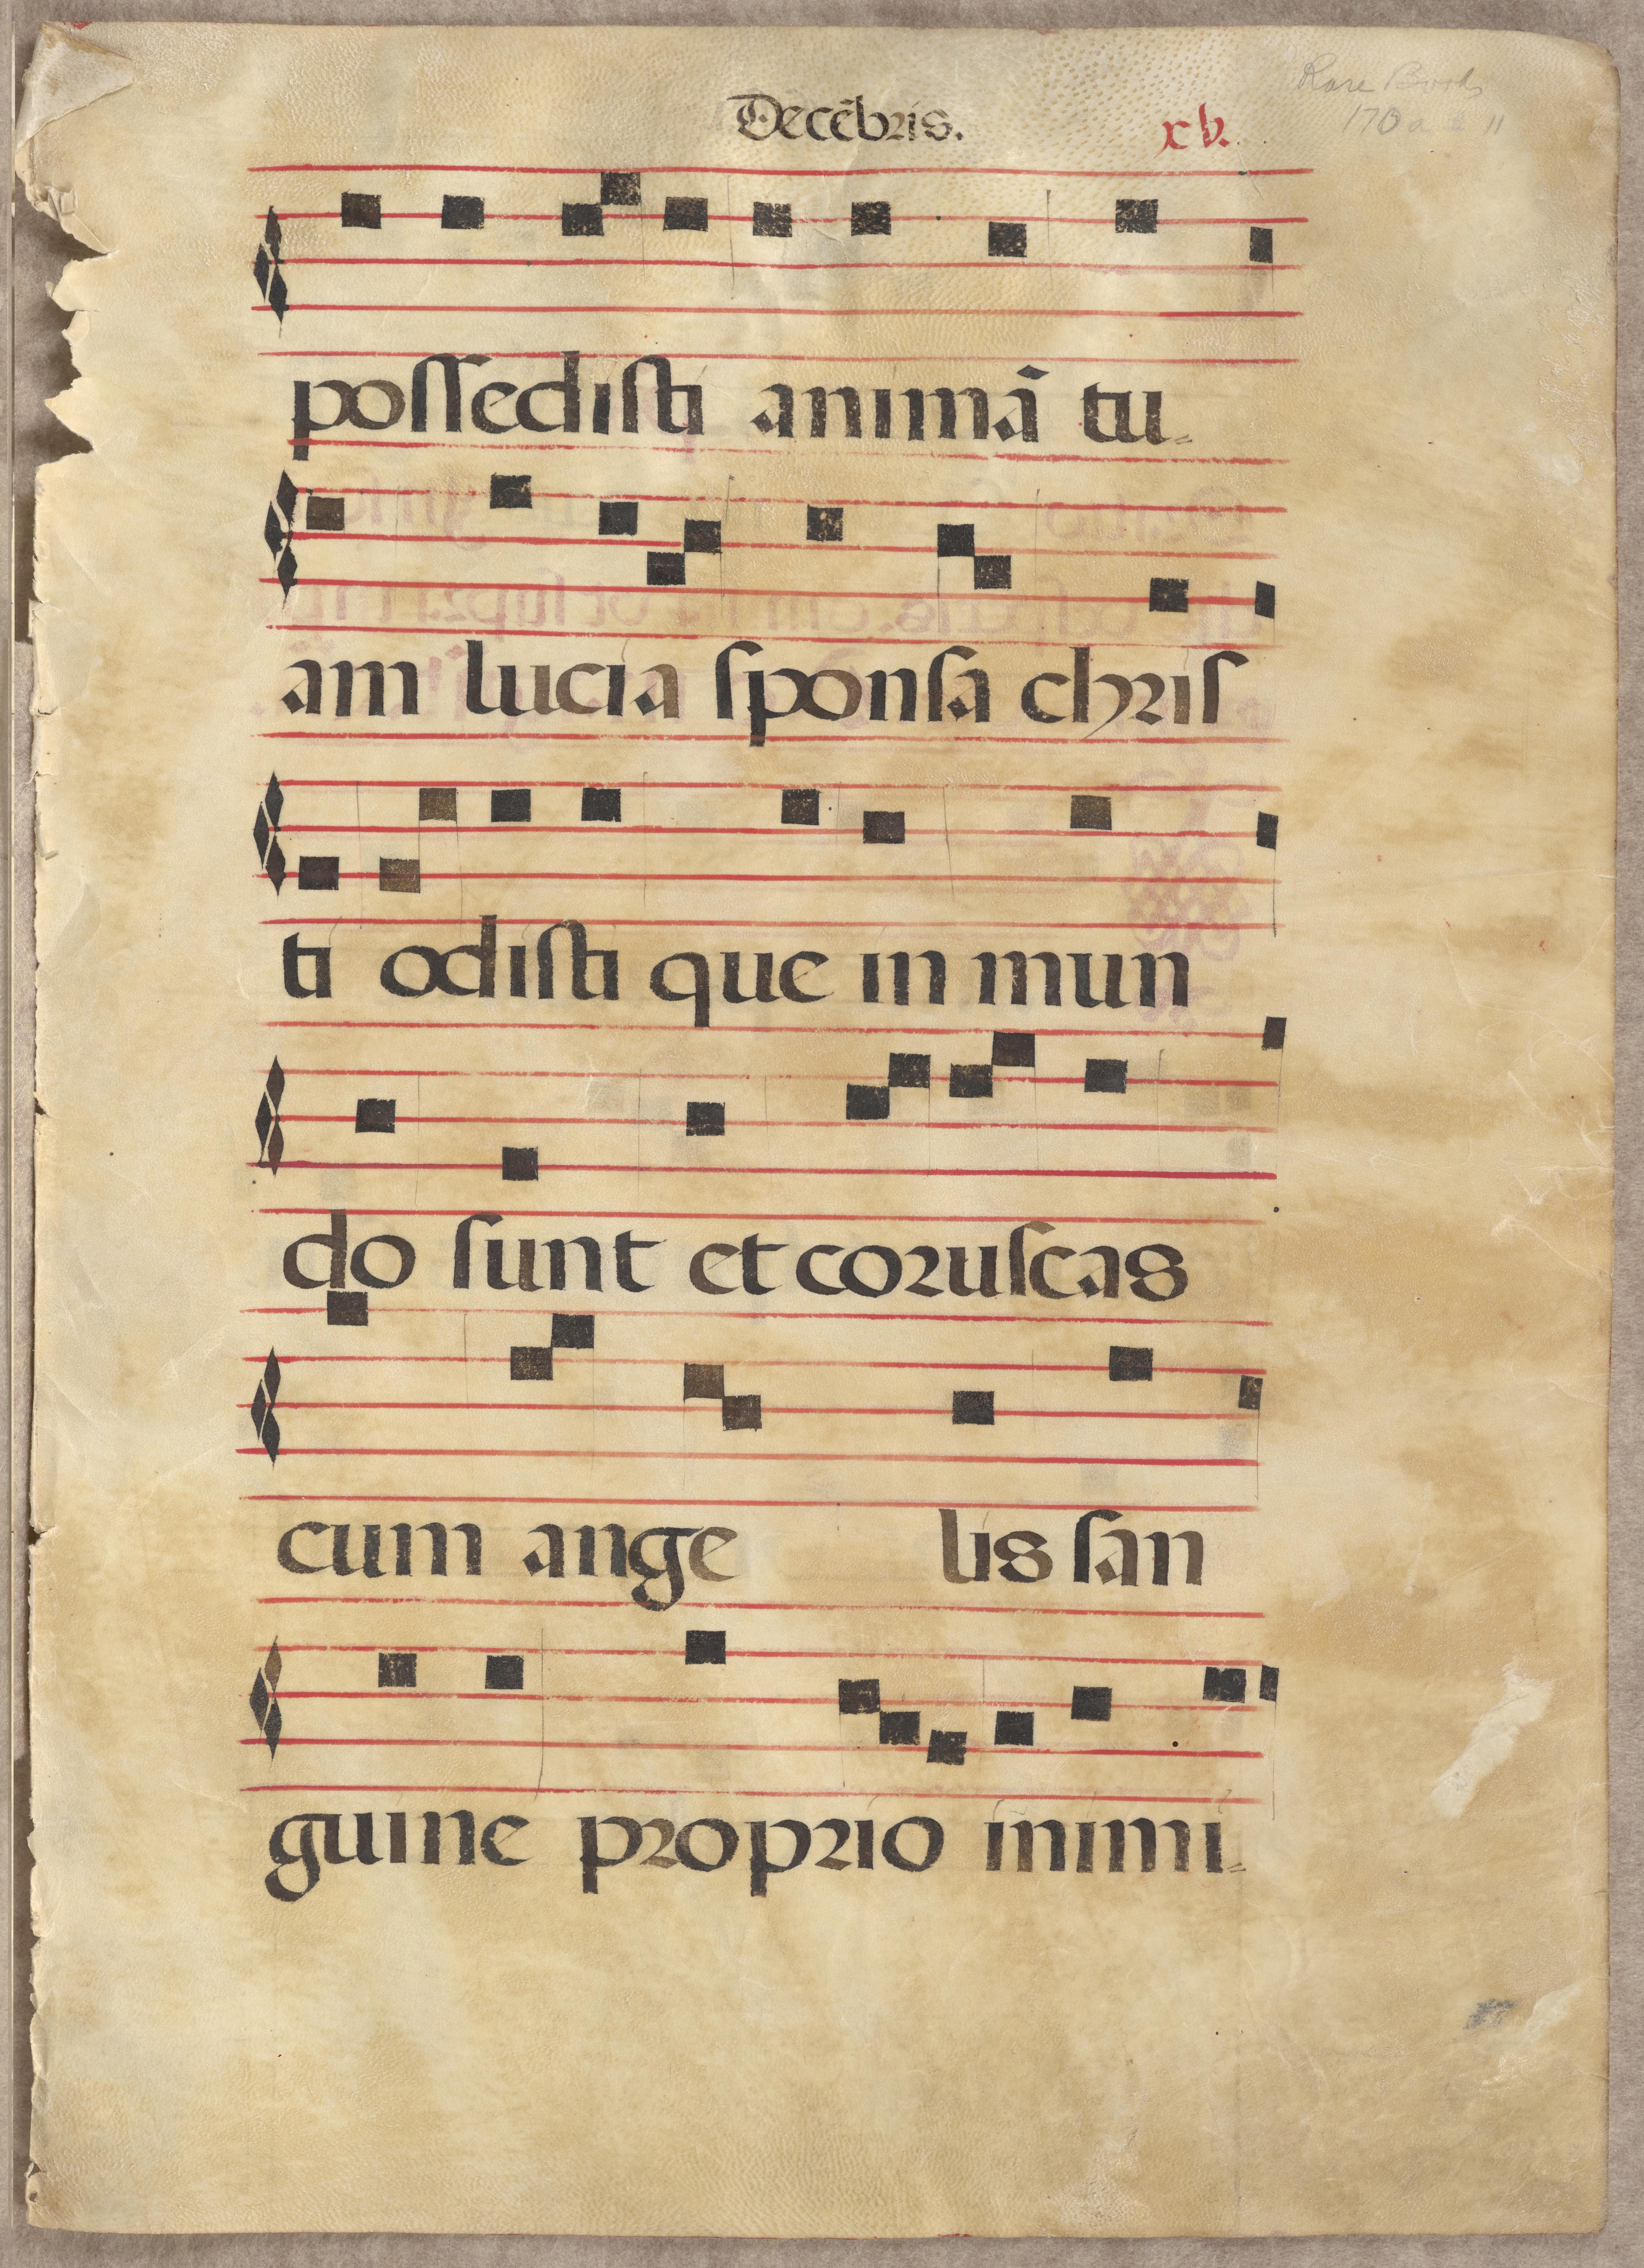 Decẽbris. xv.
Rare Books
170a
poſſediſti animã tu=
am lucia ſponſa chriſ
ti odiſti que in mun
do ſunt et coruſcas
cum ange lis ſan
guine proprio inimi=